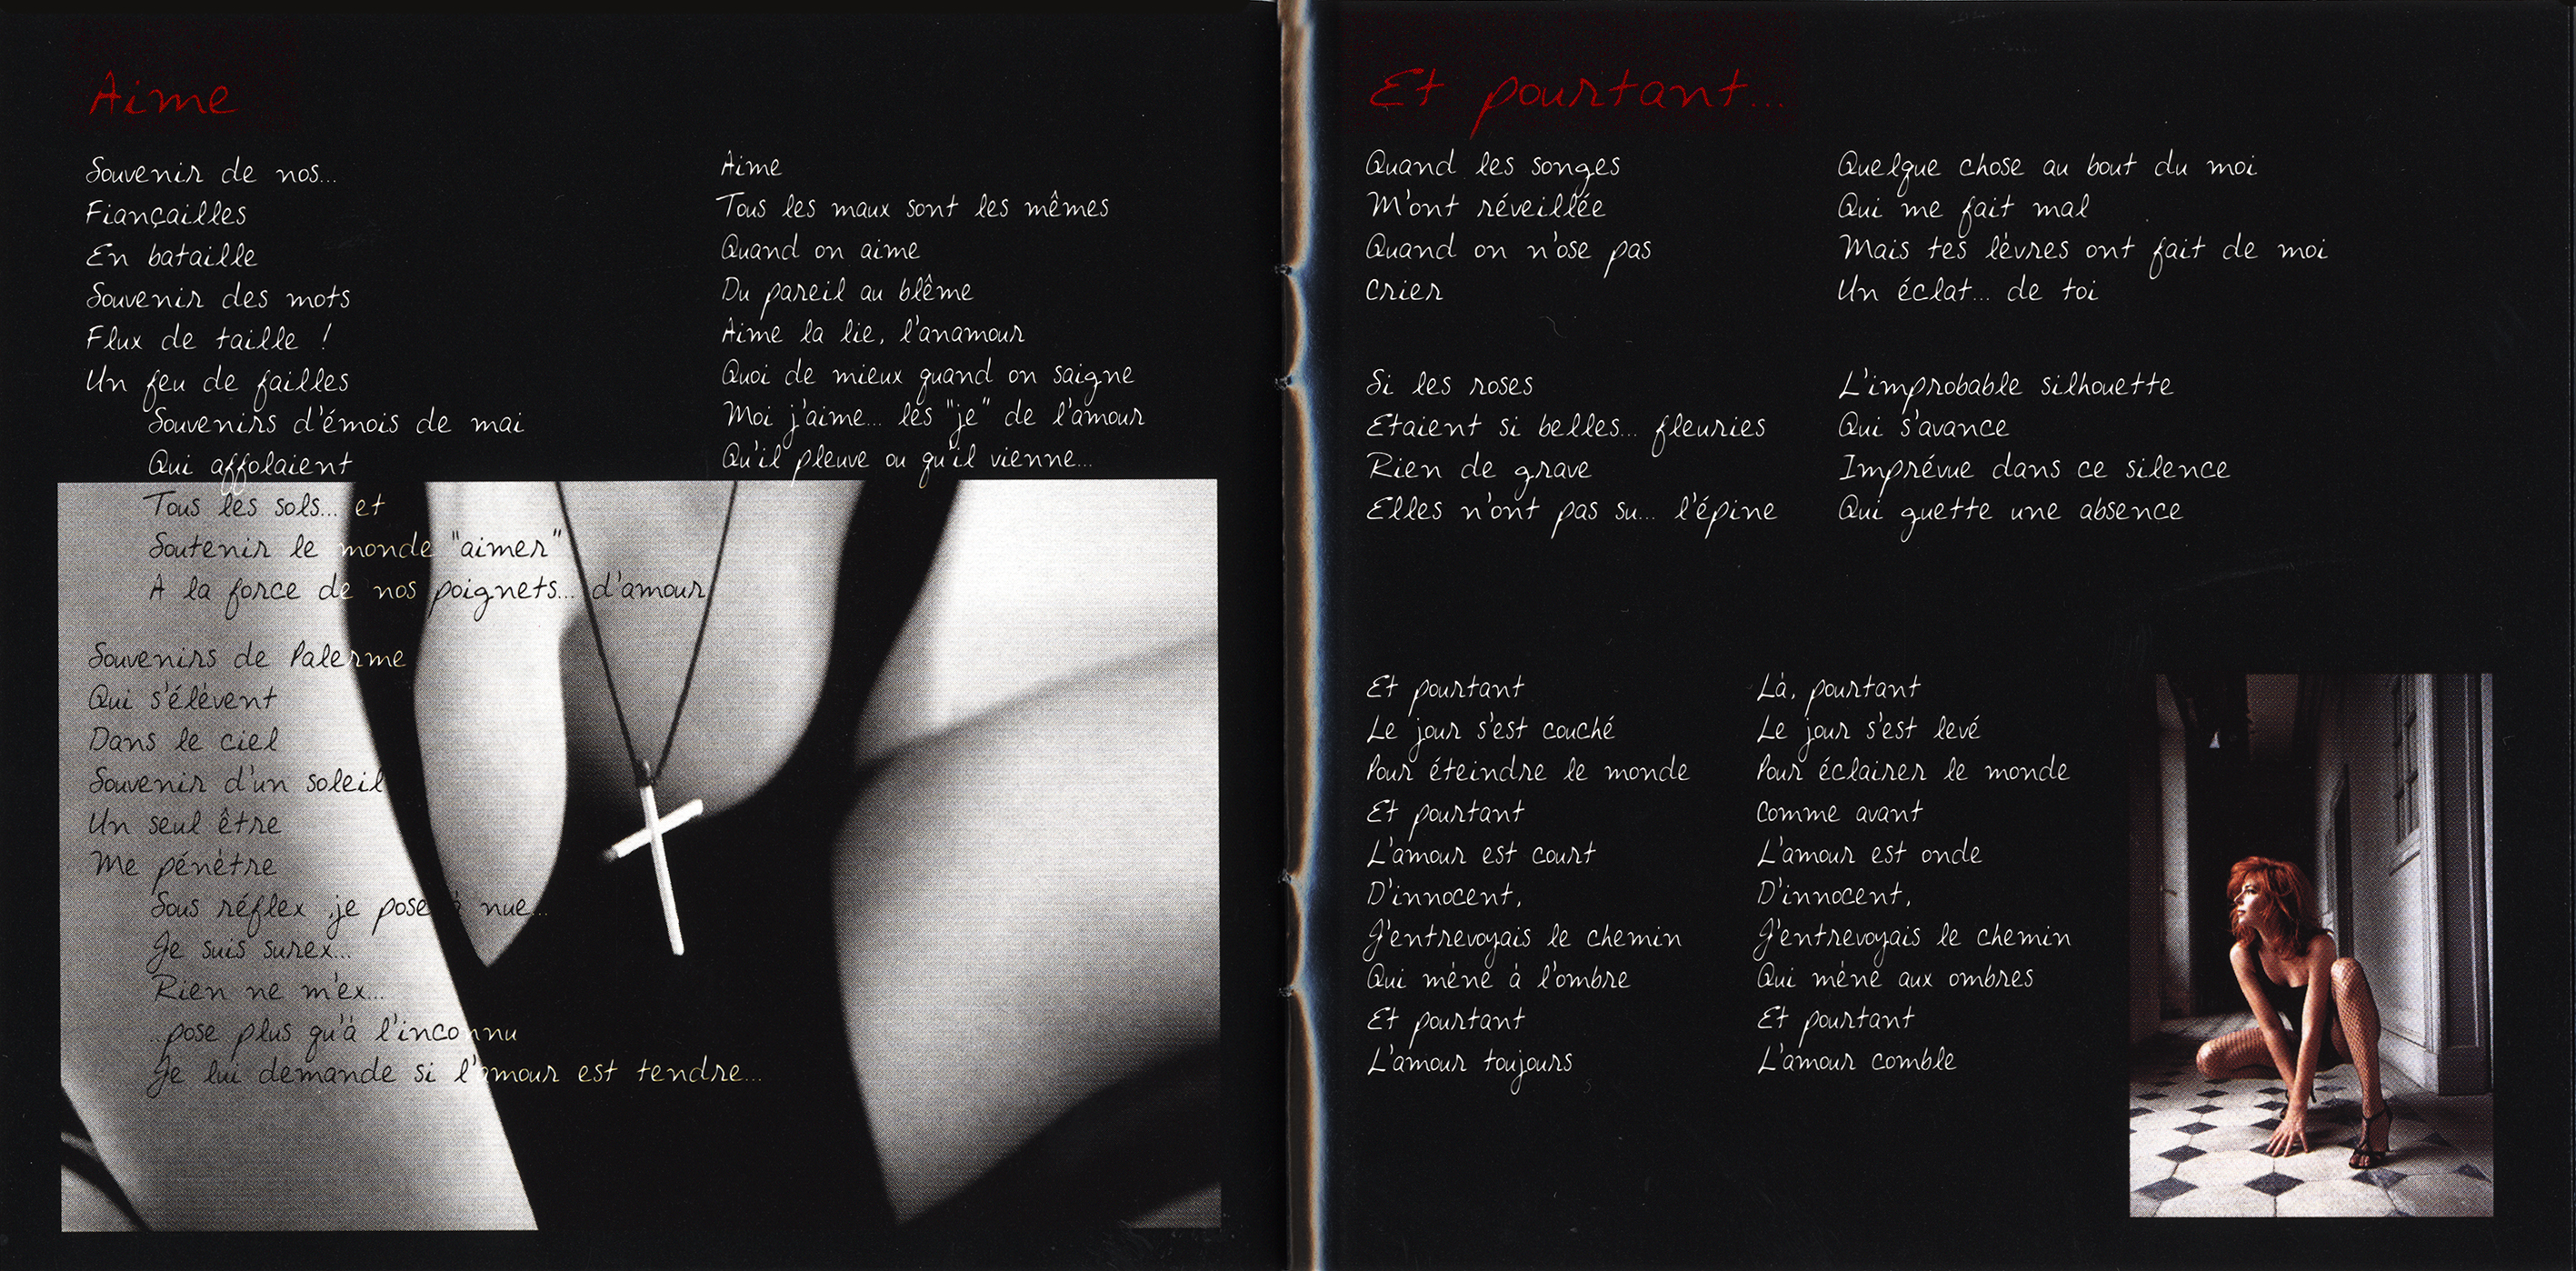 Aime
Souvenir de nos...
Fiançailles
En bataille
Souvenir des mots
Flux de taille !
Un feu de failles
Souvenirs d'émois de mai
Qui affolaient
Tous les sols... et
Soutenir le monde "aimer"
A la force de nos poignets... d'amour
Souvenirs de Palerme
Qui s'élèvent
Dans le ciel
Souvenir d'un soleil
Un seul être
Me pénètre
Sous réflex je pose à nue...
Je suis surex...
Rien ne m'ex...
..pose plus qu'à l'inconnu
Je lui demande si l'amour est tendre...
Aime
Tous les maux sont les mêmes
Quand on aime
Du pareil au blême
Aime la lie, l'anamour
Quoi de mieux quand on saigne
Moi j'aime... les "je" de l'amour
Qu'il pleuve ou qu'il vienne...
Et pourtant...
Quand les songes
M'ont réveillée
Quand on n'ose pas
Crier
Si les roses
Etaient si belles... fleuries
Rien de grave
Elles n'ont pas su... l'épine
Quelque chose au bout du moi
Qui me fait mal
Mais tes lèvres ont fait de moi
Un éclat... de toi
L'improbable silhouette
Qui s'avance
Imprévue dans ce silence
Qui guette une absence
Et pourtant
Le jour s'est couché
Pour éteindre le monde
Et pourtant
L'amour est court
D'innocent,
J'entrevoyais le chemin
Qui mène à l'ombre
Et pourtant
L'amour toujours
Là, pourtant
Le jour s'est levé
Pour éclairer le monde
Comme avant
L'amour est onde
D'innocent,
J'entrevoyais le chemin
Qui mène aux ombres
Et pourtant
L'amour comble